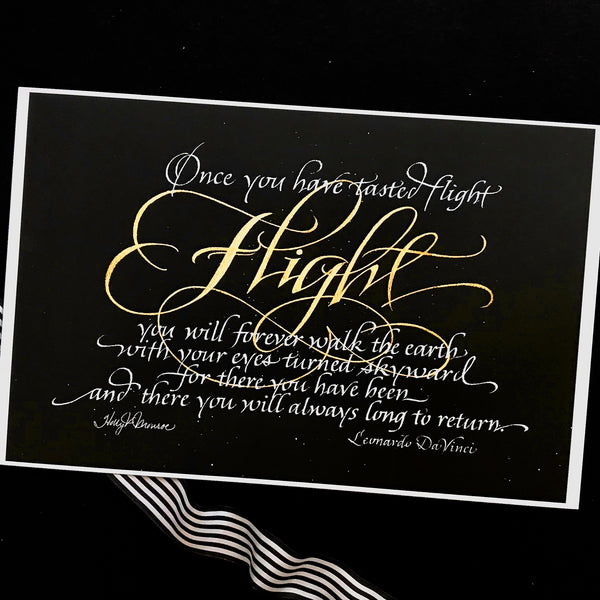 Once you have tasted flight
Flight
you will forever walk the earth
with your eyes turned skyward
for there you have been
and there you will always long to return.
Leonardo DaVinci